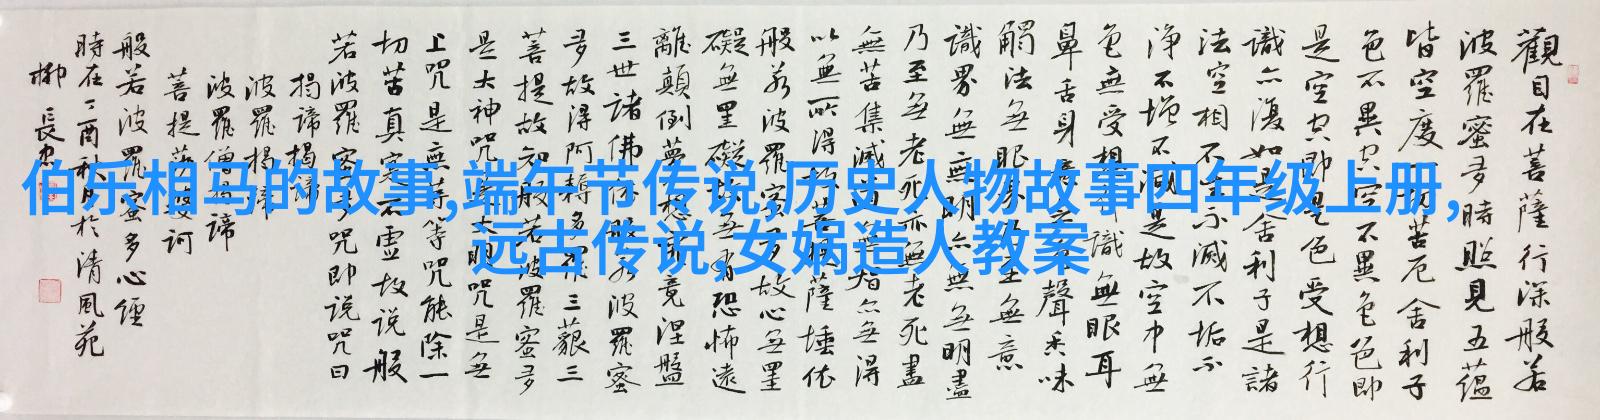 觀自在菩薩行深般若
波羅蜜多時照見五蘊
皆空度一切苦厄舍利子
色不異空空不異色色即
是空空即是色受想行
識亦復如是舍利子是諸
法空相不生不滅不垢不
淨不增不減是故空中無
色無受想行識無眼耳
鼻舌身意無色聲香味
觸法無眼界乃至無意
識界無無明亦無無明盡
乃至無老死亦無老死盡
無苦集滅道無智亦無得
以無所得故菩提薩埵依
般若波羅蜜多故心無罣
礙無罣礙故無有恐怖遠
離顛倒夢想究竟涅盤
三世諸佛依般若波羅蜜
多故得阿耨多羅三藐三
菩提故知般若波羅蜜多
是大神咒是大明咒是無
上咒是無等等咒能除一
切苦真實不虛故说般
若波羅蜜多咒即说咒曰
揭諦揭諦
波羅揭諦
波羅僧揭諦
菩提薩婆訶
般若波羅蜜多心經
時在丁酉秋月於清風苑
柳長忠
伯乐相马的故事,端午节传说,历史人物故事四年级上册,
远古传说,女娲造人教案